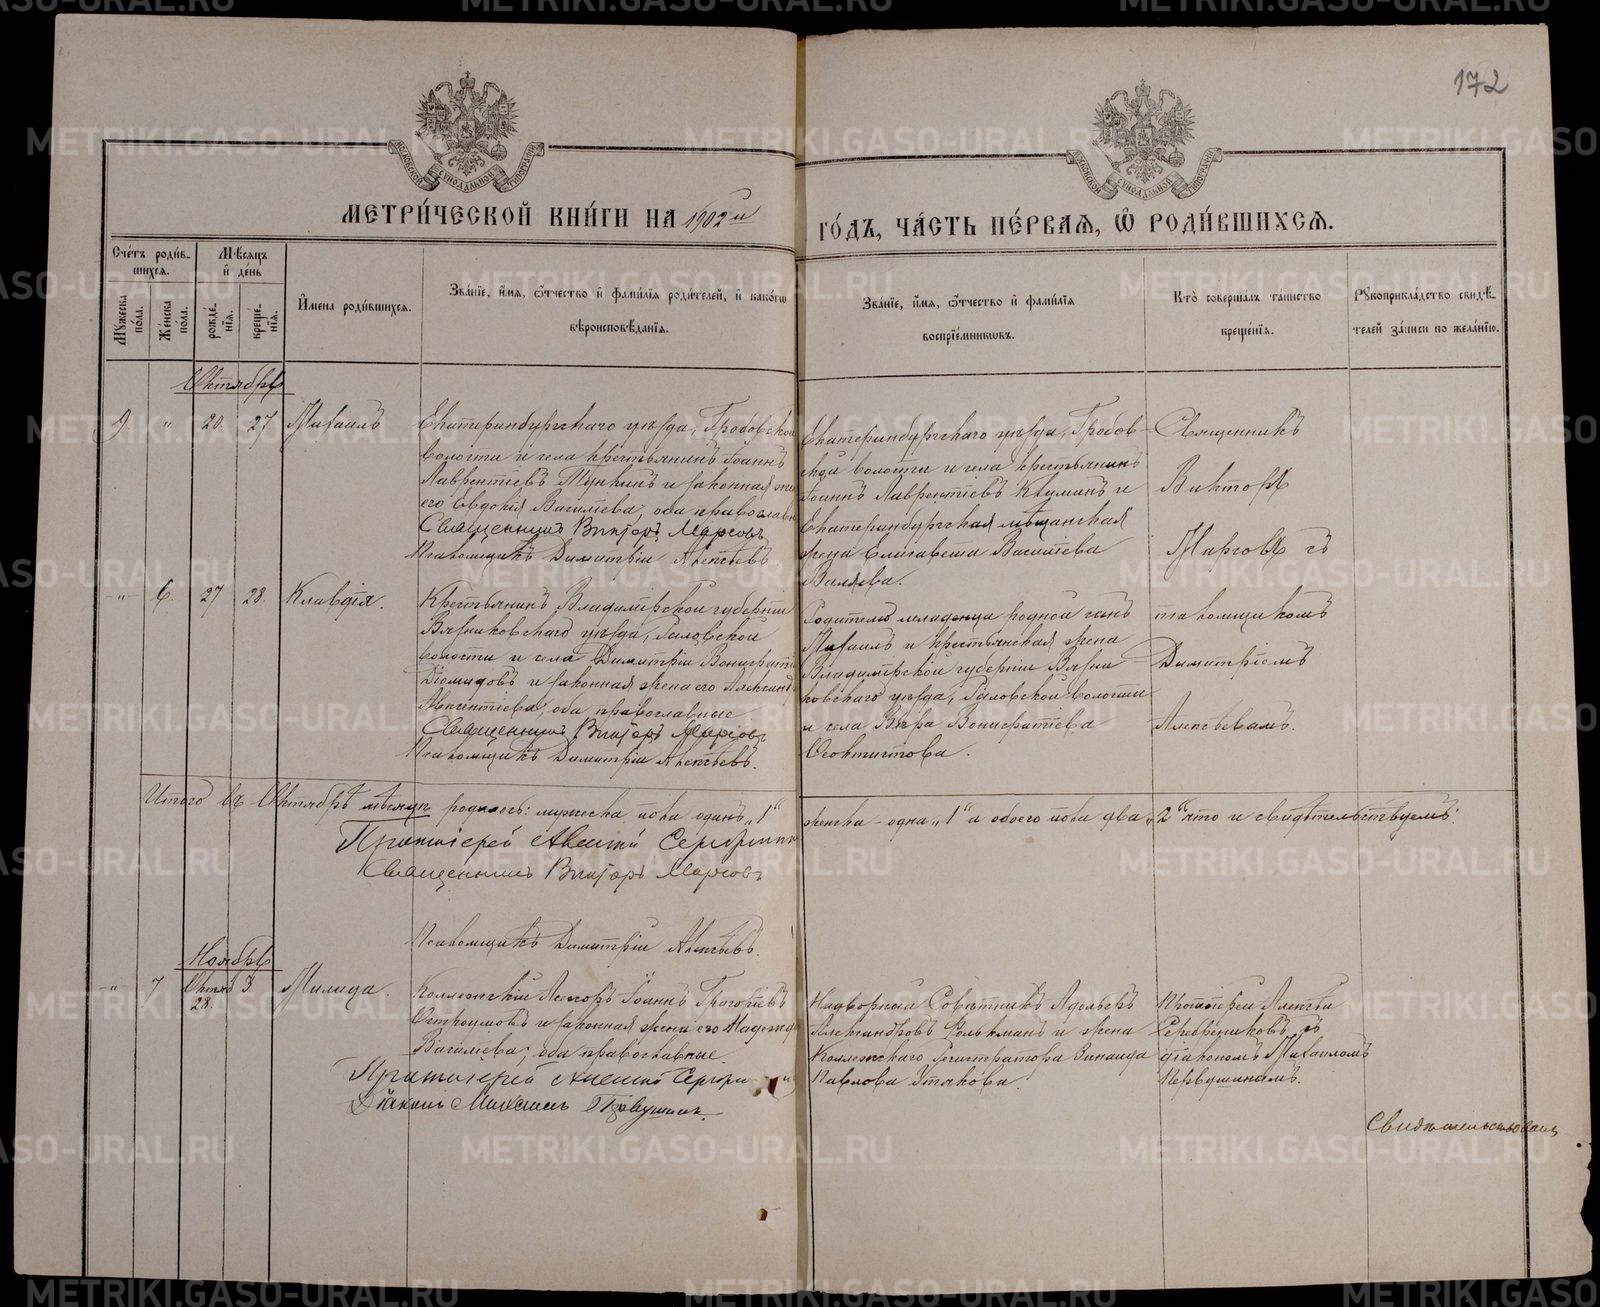 172
МОСКОВСКОЙ СѴНОДАЛЬНОЙ ТИПОГРАФІИ
МОСКОВСКОЙ СѴНОДАЛЬНОЙ ТИПОГРАФІИ
МЕТРИ́ЧЕСКОЙ КНИ́ГИ НА 1902 й
ГО́ДЪ, ЧА́СТЬ ПЕ́РВАѦ, Ѡ РОДИ́ВШИХСѦ.
Сче́тъ роди́в-
шихся.
Мѣ́сяцъ
и день
Мужеска по́ла.
Же́нска по́ла.
рожде́-
нія.
креще́-
нія.
И́мена роди́вшихся.
Зва́ніе, и́мя, о́тчество и фами́лія роди́телей, и како́гѡ
вѣроисповѣ́данія.
Зва́ніе, и́мя, о́тчество и фами́лія
воспріе́мникѡвъ.
Кто̀ соверша́лъ та́инство
креще́нія.
Рукоприкла́дство свидѣ́-
телей за́писи по жела́нію.
Октябрь
9. " 20. 27 Михаилъ
Екатеринбургскаго уѣзда, Гробовской
волости и села крестьянинъ Іоаннъ
Лаврентіевъ и законная жена
его Евдокія Васильева, оба православн
Священникъ Викторъ Марсовъ
Псаломщикъ Димитрій Алексѣевъ
Екатеринбургскаго уѣзда, Гробов-
ской волости и села крестьянинъ
Іоаннъ Лаврентіевъ и
Екатеринбургская мѣщанская
жена Елисавета Васильева
Священникъ
Викторъ
Марсовъ съ
-"- 6. 27 28. Клавдія.
Крестьянинъ Владимірской губерніи
Вязниковскаго уѣзда,
волости и села Димитрій
Діомидовъ и законная жена его Александ
оба православные
Священникъ Викторъ Марсовъ
Псаломщикъ Димитрій Алексѣевъ.
Родителю младенца родной сынъ
Михаилъ и крестьянская жена
Владимірской губерніи Вязни-
ковскаго уѣзда, волости
и села Вѣра
псаломщикомъ
Димитріемъ
Алексѣевымъ.
Итого въ Октябрѣ мѣсяцѣ родилось: мужеска пола одинъ „1“
женска – одна „1“ а обоего пола два „2“ что и свидѣтельствуемъ:
Протоіерей Алексій
Священникъ Викторъ Марсовъ
Псаломщикъ Димитрій Алексѣевъ.
Ноябрь
-"- 7 Октяб 28. 3 Милица.
Коллежскій Ассесоръ Іоаннъ Григоріевъ
Остроумовъ и законная жена его Надежда
Васильева, оба православные.
Протоіерей Алексій
Діаконъ Михаилъ Первушинъ.
Надворный Совѣтникъ Адольфъ
Александровъ и жена
Коллежскаго Регистратора Зинаида
Павлова Утякова.
Протоіерей Алексѣй
Серебрениковъ съ
діакономъ Михаиломъ
Первушинымъ.
Свидѣтельствовалъ
METRIKI.GASO-URAL.RU